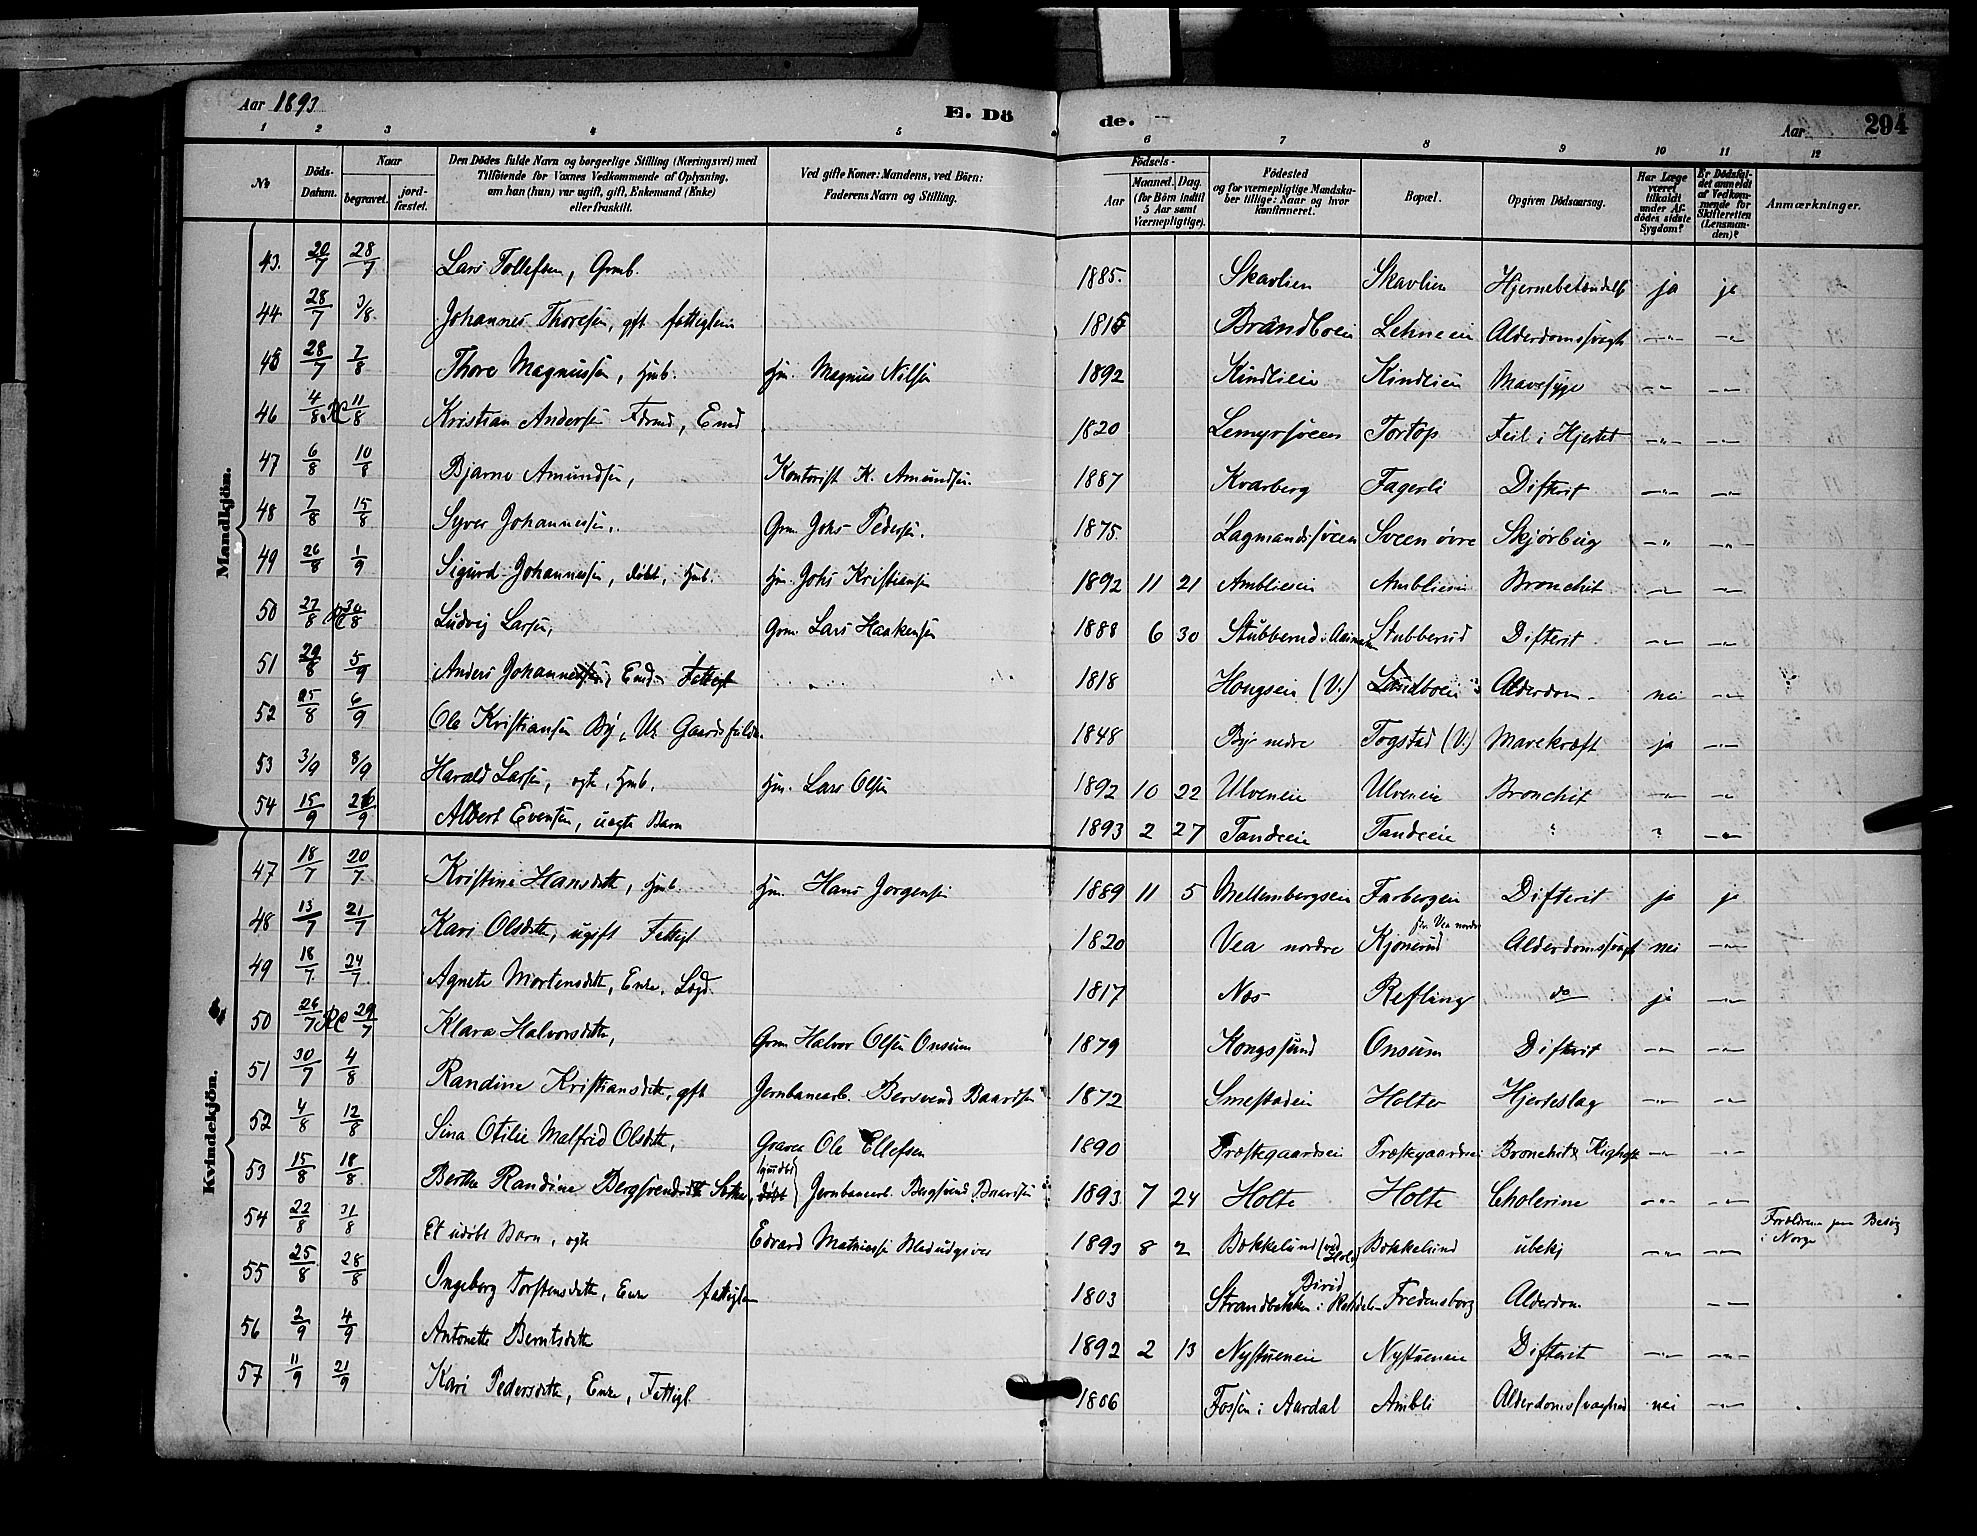 Aar 1893 E. Dö de. Aar 294
1 2 3 4 5 6 7 8 9 10 11 12
No Döds-Datum. Naar begravet. jord-fæstet. Den Dödes fulde Navn og borgerlige Stilling (Næringsvei) med Tilföiende for Voxnes Vedkommende af Oplysning, om han (hun) var ugift, gift, Enkemand (Enke) eller fraskilt. Ved gifte Koner: Mandens, ved Börn: Faderens Navn og Stilling. Födsels- Aar Maaned. Dag. (for Börn indtil 5 Aar samt Værnepligtige). Födested og for værnepligtige Mandskaber tillige: Naar og hvor konfirmeret. Bopæl. Opgiven Dödsaarsag. Har Læge været tilkaldt under Afdödes sidste Sygdom? Er Dödsfaldet anmeldt af Vedkommende for Skifteretten (Lensmanden)? Anmærkninger.
Mandkjön.
43. 20/7 28/7 Lars Tollefsen, Grmb. 1885. Skavlien Skavlien ja ja
44 28/7 3/8 Johannes Thoresen, gft fattiglem 1815 Brändboein Lehneein Alderdomssvagh -"- -"-
45 28/7 7/8 Thore Magnussen, Hmb. Hm. Magnus Nilsen 1892 Kindlieie Kindlieie Mavesyge -"- -"-
46 4/8 11/8 Kristian Andersen, Emd 1820 Tortop Feil i Hjertet -"- -"-
47 6/8 10/8 Bjarne Amundsen, Kontorist K. Amundsen. 1887 Kvarberg Fagerli Difterit -"- -"-
48 7/8 15/8 Syver Johannessen, Grm. Johs Pedersen. 1875 Lagmandssveen Sveen övre Skjörbug -"- -"-
49 26/8 1/9 Sigurd Johannessen, döbt, Hmb. Hm. Johs Kristiansen 1892 11 21 Amblieien Amblieien Bronchit -"- -"-
50 27/8 30/8 Ludvig Larsen, Grm. Lars Haakensen 1888 6 30 Stubberud i Stubberud Difterit -"- -"-
51 29/8 5/9 Anders Johannessen, Emd. Fattigl 1818 Hougseie (V.) Alderdom nei -"-
52 25/8 6/9 Ole Kristiansen By, Uk. 1848 By nedre Togstad (V.) Mavekræft ja -"-
53 3/9 8/9 Harald Larsen, ægte, Hmb. Hm. Lars Olsen 1892 10 22 Ulveneie Ulveneie Bronchit -"- -"-
54 15/9 26/9 Albert Evensen, uægte Barn 1893 2 27 Tandeeie Tandeeie " " -"-
Kvindekjön.
47 18/7 20/7 Kristine Hansdatte, Hmb. Hm. Hans Jorgensen 1889 11 5 Mellembergseie Farbergeie Difterit ja ja
48 13/7 21/7 Kari Olsdatte, ugift Fattigl 1820 Vea nordre Kjonerud Vea nordre Alderdomssvagh nei -"-
49 18/7 24/7 Agnete Mortensdatte, Enke, Lægd. 1817 Næs Refling do ja -"-
50 26/7 29/7 Klara Halvorsdatte, Grm Halvor Olsen Onsum 1879 Kongssund Onsum Difterit -"- -"-
51 30/7 4/8 Randine Kristiansdatte, gft Jernbanearb. Bersvend Baardsen 1872 Smestadeie Holter Hjerteslag -"- -"-
52 4/8 12/8 Sina Otilie Malfrid Olsdatte, Graver Ole Ellefsen 1890 Præstegaardseie Præstegaardseie Bronchit & Kighoste -"- -"-
53 15/8 18/8 Berthe Randine Bergsvendsdatte döbt Jernbanearb. Bergsvend Baardsen 1893 7 24 Holte Holte Cholerine -"- -"-
54 22/8 31/8 Et udöbt Barn, ægte Edvard Mathiesen Bladudgiver 1893 8 2 Bækkelund Bækkelund ubekj -"- -"- Forældrene paa Besøg i Norge
55 25/8 28/8 Ingeborg Torstensdatte, Enke fattiglem 1803 Strandbakken i Fredensborg Alderdom -"-
56 2/9 4/9 Antonette Berntsdatte 1892 2 13 Nystueneie Nystueneie Difterit -"- -"-
57 11/9 21/9 Kari Pedersdatte, Enke, Fattigl. 1806 Fossen i Aardal Ambli Alderdomssvaghed nei -"-